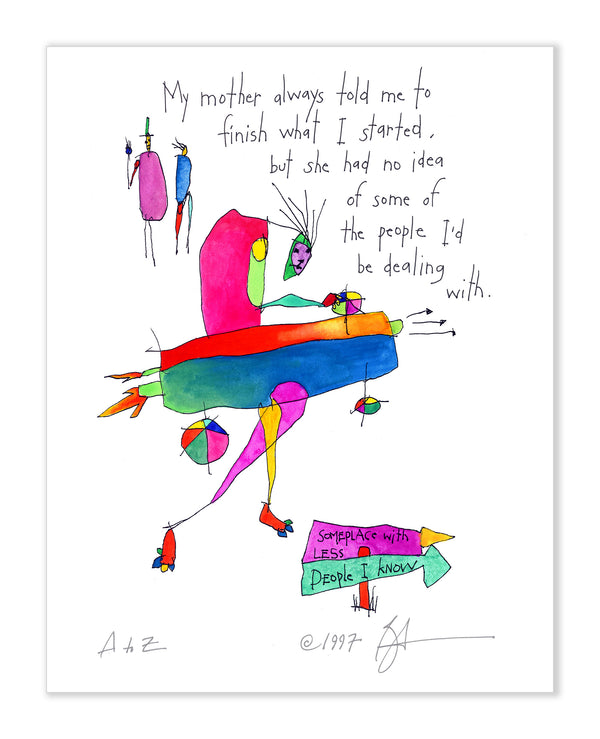 My mother always told me to
finish what I started,
but she had no idea
of some of
the people I'd
be dealing
with.
SOMEPLACE with
LESS
People I know
A to Z
©1997